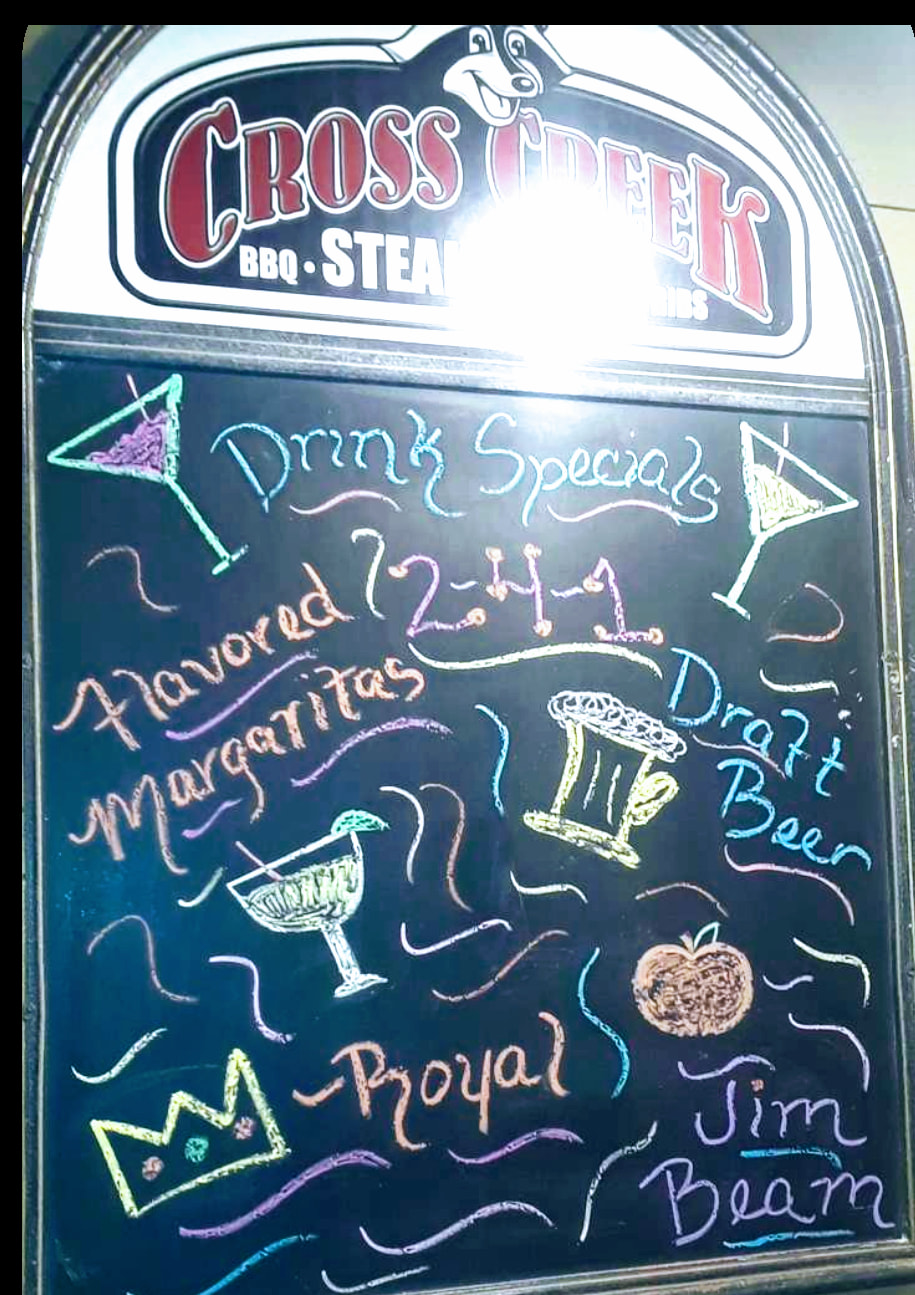 CROSS CREEK
BBQ • STEA
RIBS
Drink Specials
2-4-1
Flavored
Margaritas
Draft
Beer
-Royal
Jim
Beam